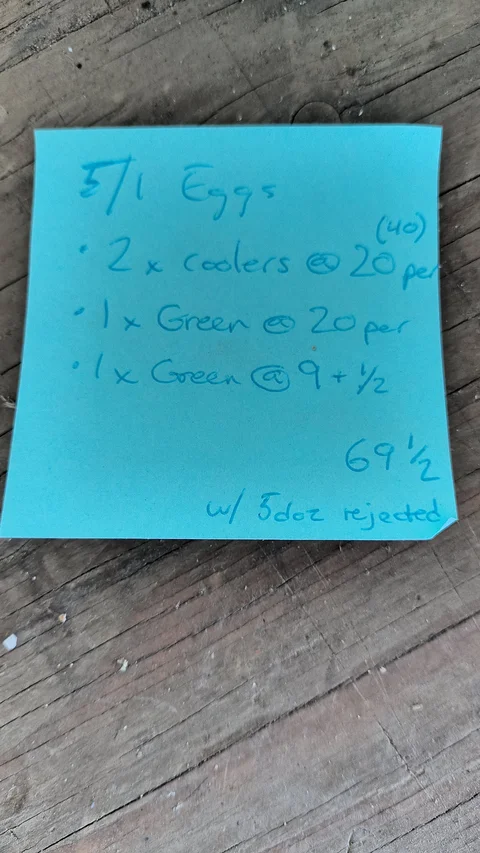 5/1 Eggs
(40)
• 2 x coolers @ 20 per
• 1 x Green @ 20 per
• 1 x Green @ 9 + 1/2
69 1/2
w/ 5doz rejected